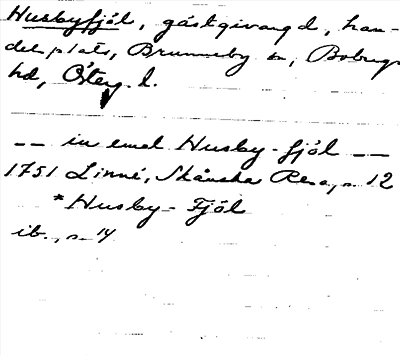 Husbyfjöl, gästgivaregd, han-
delsplats, Brunneby sn, Bobergs
hd, Österg. l.
-- in emot Husby-fjöl --
1751 Linné, Skånska Resa, s. 12
*Husby-Fjöl
ib., s. 14